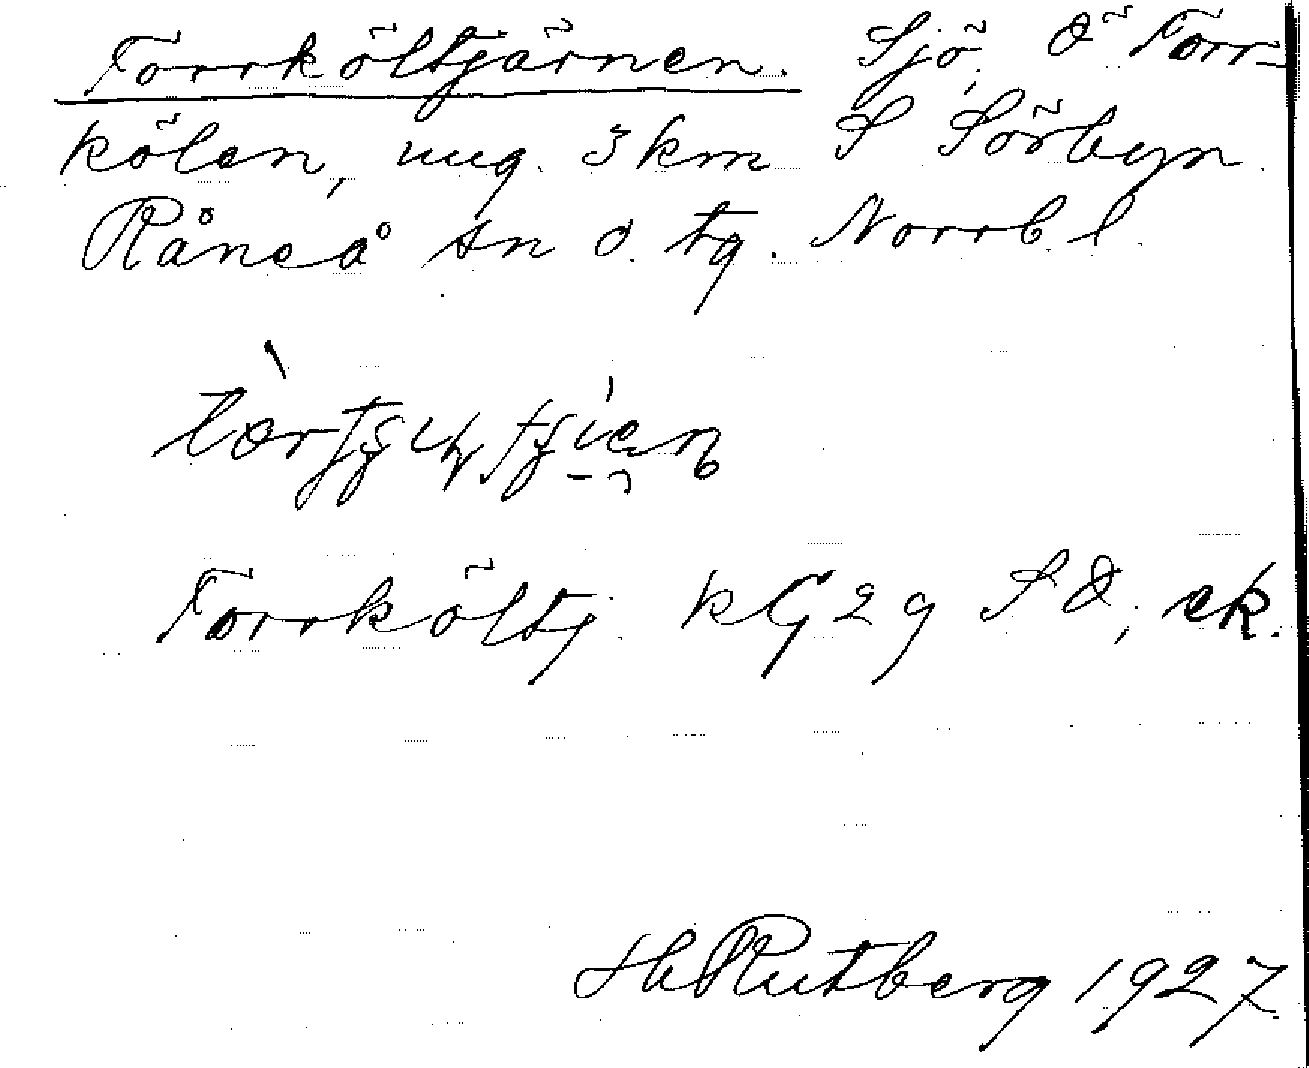 Torrköltjärnen. Sjö, Ö Torr-
kölen, ung. 3 km S Sörbyn
Råneå sn o. tg. Norrb. l.
Torrköltj. kG 29 SO, ek.
H Rutberg 1927